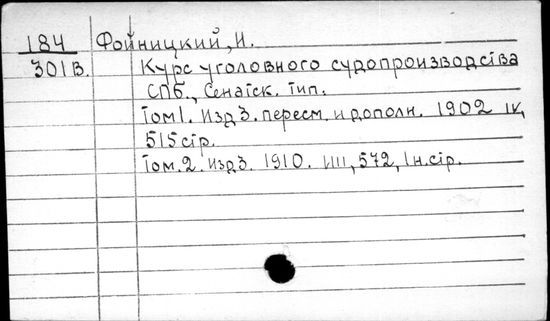 184 Фойницкий, И.
301В. Курс уголовного судопроизводства
СПб., Сенатск. тип.
Том 1. Изд 3. пересм. и дополн. 1902 IV,
515 стр.
Том. 2. Изд 3. 1910. III, 572, 1 н. стр.